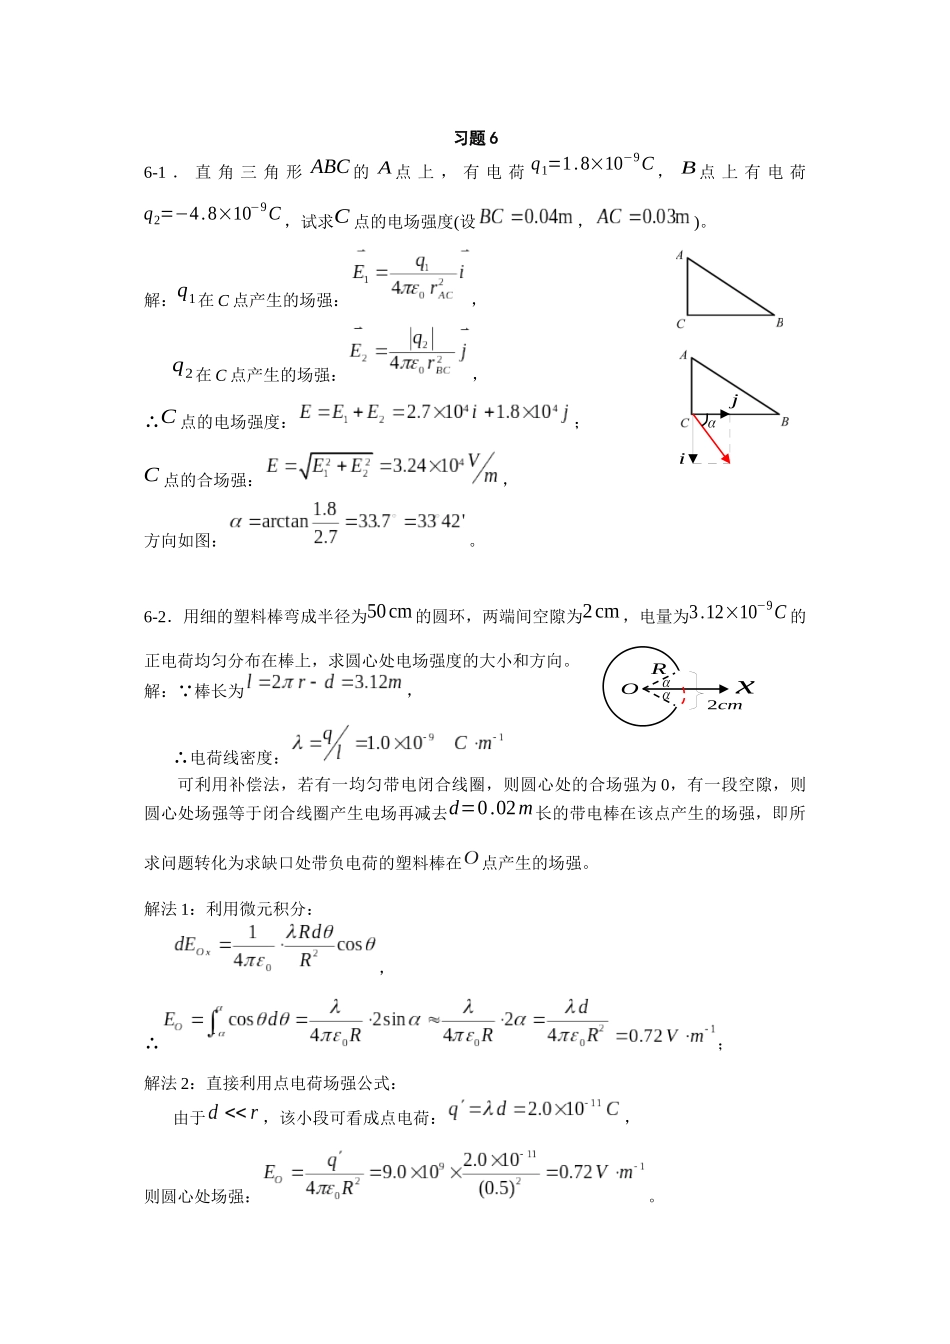 习题 6
6-1 ． 直 角 三 角 形 ABC 的 A 点 上 ， 有 电 荷 q₁=1.8×10⁻⁹C ， B 点 上 有 电 荷
q₂=−4.8×10⁻⁹C ，试求C 点的电场强度(设 BC =0.04m ， AC =0.03m )。
解：q₁在 C 点产生的场强： E₁ = q₁/(4πε₀ r²_AC) i ，
A
C
B
q₂在 C 点产生的场强： E₂ = |q₂|/(4πε₀ r²_BC) j ，
A
j
C
α
B
i
∴C 点的电场强度：E =E₁+E₂ =2.7×10⁴ i+1.8×10⁴ j ；
C 点的合场强： E =√(E₁²+E₂²) =3.24×10⁴ V/m ，
方向如图： α =arctan 1.8/2.7 =33.7° =33°42' 。
6-2．用细的塑料棒弯成半径为50cm的圆环，两端间空隙为2cm，电量为3.12×10⁻⁹C 的
正电荷均匀分布在棒上，求圆心处电场强度的大小和方向。
解：∵棒长为 l =2π r - d =3.12m ，
R
O
α
α
X
2cm
∴电荷线密度： λ = q/l =1.0×10⁻⁹ C ·m⁻¹
可利用补偿法，若有一均匀带电闭合线圈，则圆心处的合场强为 0，有一段空隙，则
圆心处场强等于闭合线圈产生电场再减去d=0.02m长的带电棒在该点产生的场强，即所
求问题转化为求缺口处带负电荷的塑料棒在O点产生的场强。
解法 1：利用微元积分：
dE_Ox = 1/(4πε₀) · λRdθ/R² cosθ ，
∴ E_O = ∫_{-α}^{α} cosθdθ = λ/(4πε₀R) ·2sinα ≈ λ/(4πε₀R) ·2α = λd/(4πε₀R²) =0.72V ·m⁻¹ ；
解法 2：直接利用点电荷场强公式：
由于d <<r ，该小段可看成点电荷： q′ =λd =2.0×10⁻¹¹C ，
则圆心处场强： E_O = q′/(4πε₀R²) =9.0×10⁹× 2.0×10⁻¹¹/(0.5)² =0.72V ·m⁻¹ 。